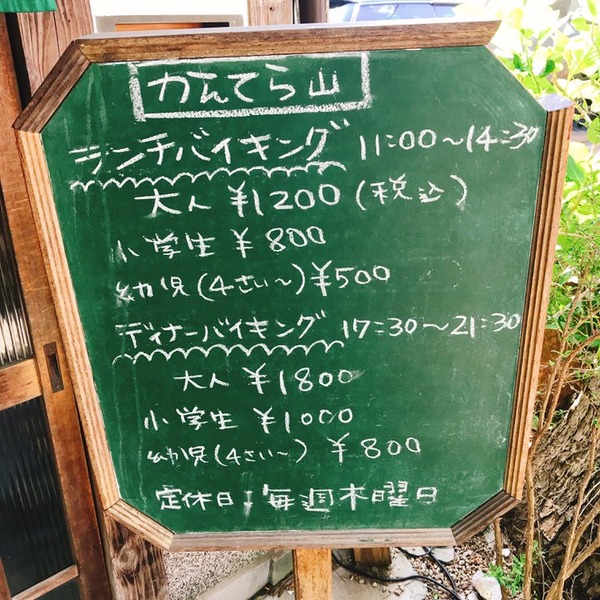 かんてら山
ランチバイキング 11:00～14:30
大人 ¥1200(税込)
小学生 ¥800
幼児(4さい～)¥500
ディナーバイキング 17:30～21:30
大人 ¥1800
小学生 ¥1000
幼児(4さい～) ¥800
定休日:毎週木曜日